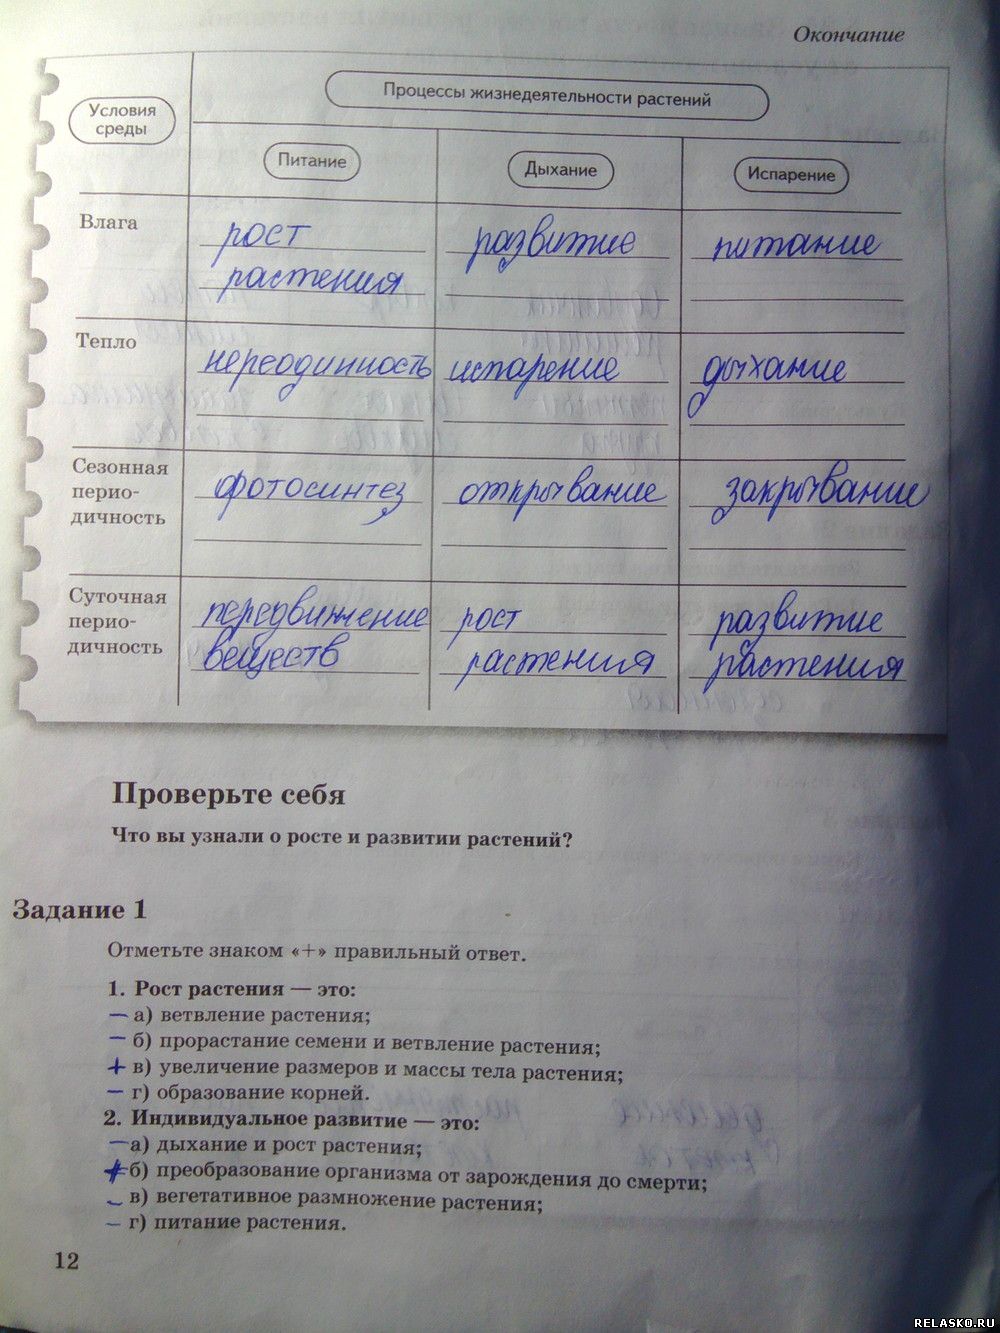 Окончание
Условия
среды
Процессы жизнедеятельности растений
Питание
Дыхание
Испарение
Влага
рост
растения
развитие
питание
Тепло
нереодинность
испарение
дыхание
Сезонная
перио-
дичность
фотосинтез
открывание
закрывание
Суточная
перио-
дичность
передвижение
веществ
рост
растения
развитие
растения
Проверьте себя
Что вы узнали о росте и развитии растений?
Задание 1
Отметьте знаком «+» правильный ответ.
1. Рост растения — это:
— а) ветвление растения;
— б) прорастание семени и ветвление растения;
+ в) увеличение размеров и массы тела растения;
— г) образование корней.
2. Индивидуальное развитие — это:
— а) дыхание и рост растения;
+ б) преобразование организма от зарождения до смерти;
— в) вегетативное размножение растения;
— г) питание растения.
12
RELASKO.RU